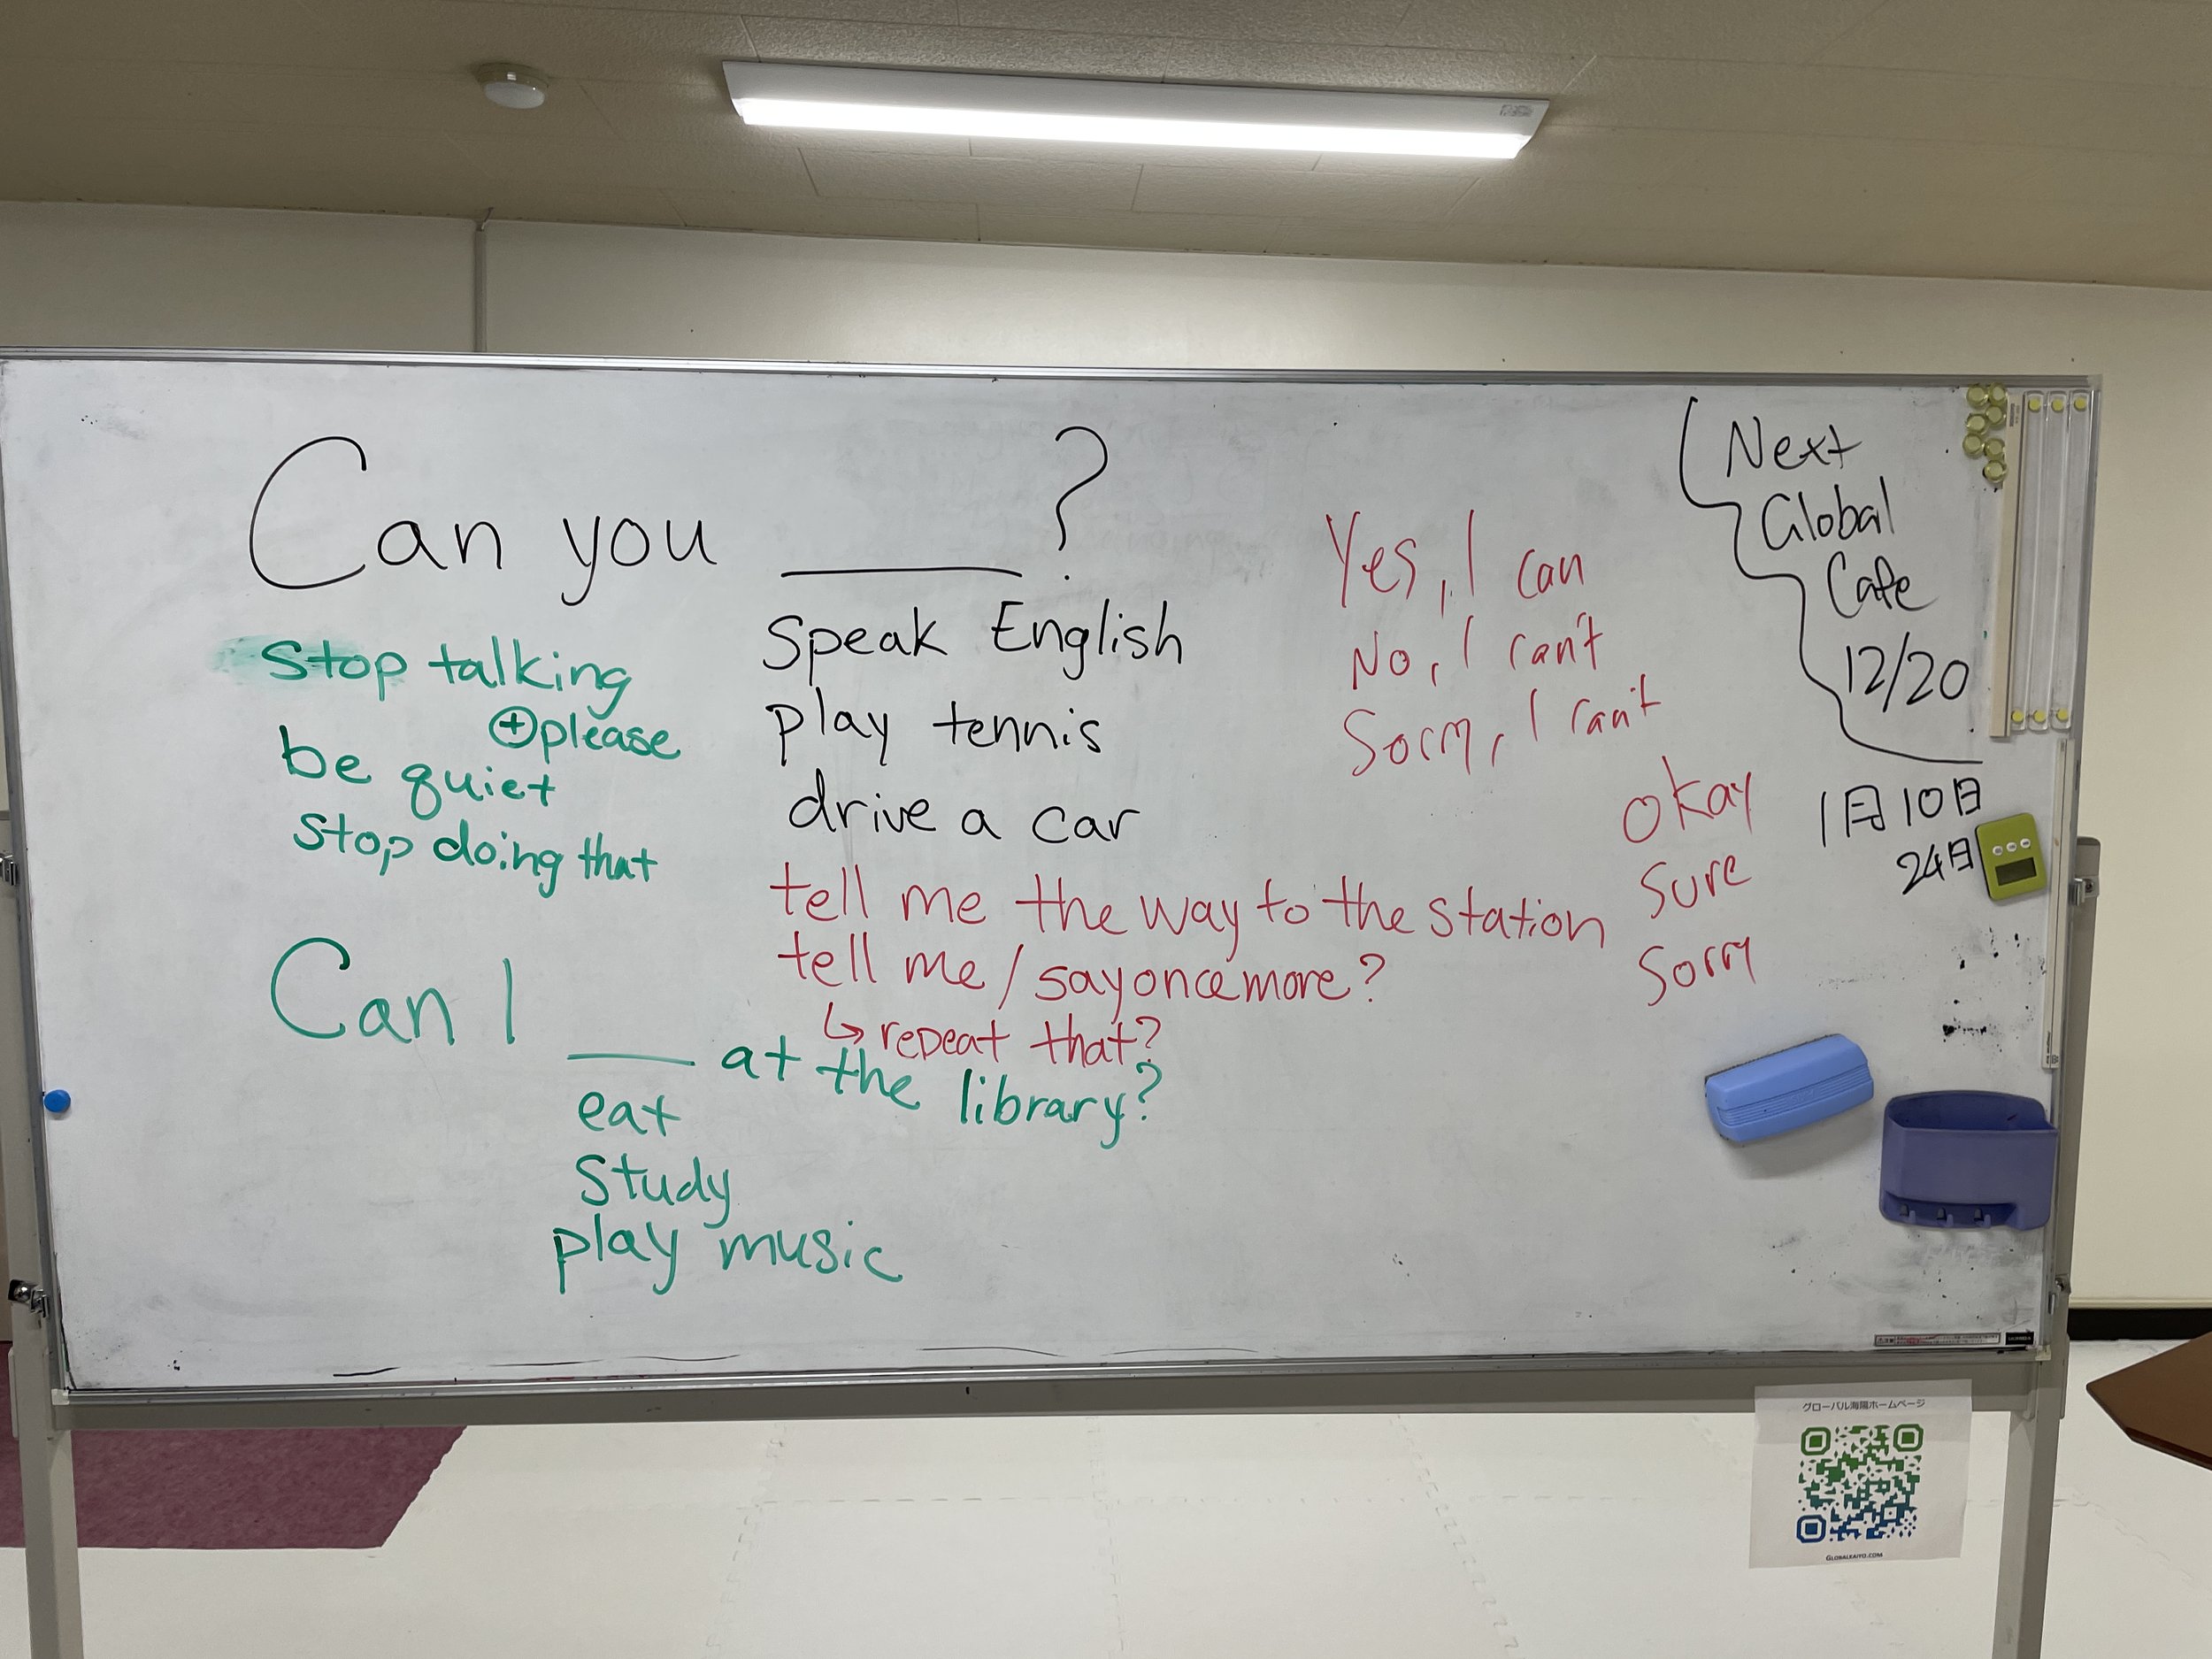 Can you ____?
Speak English
play tennis
drive a car
tell me the way to the station
tell me / say once more?
↳ repeat that?
Stop talking
⊕please
be quiet
Stop doing that
Yes, I can
No, I can't
Sorry, I can't
okay
Sure
Sorry
Next
Global
Cafe
12/20
1月10日
24日
Can I ____ at the library?
eat
Study
play music
グローバル海陽ホームページ
GLOBALKAIYO.COM